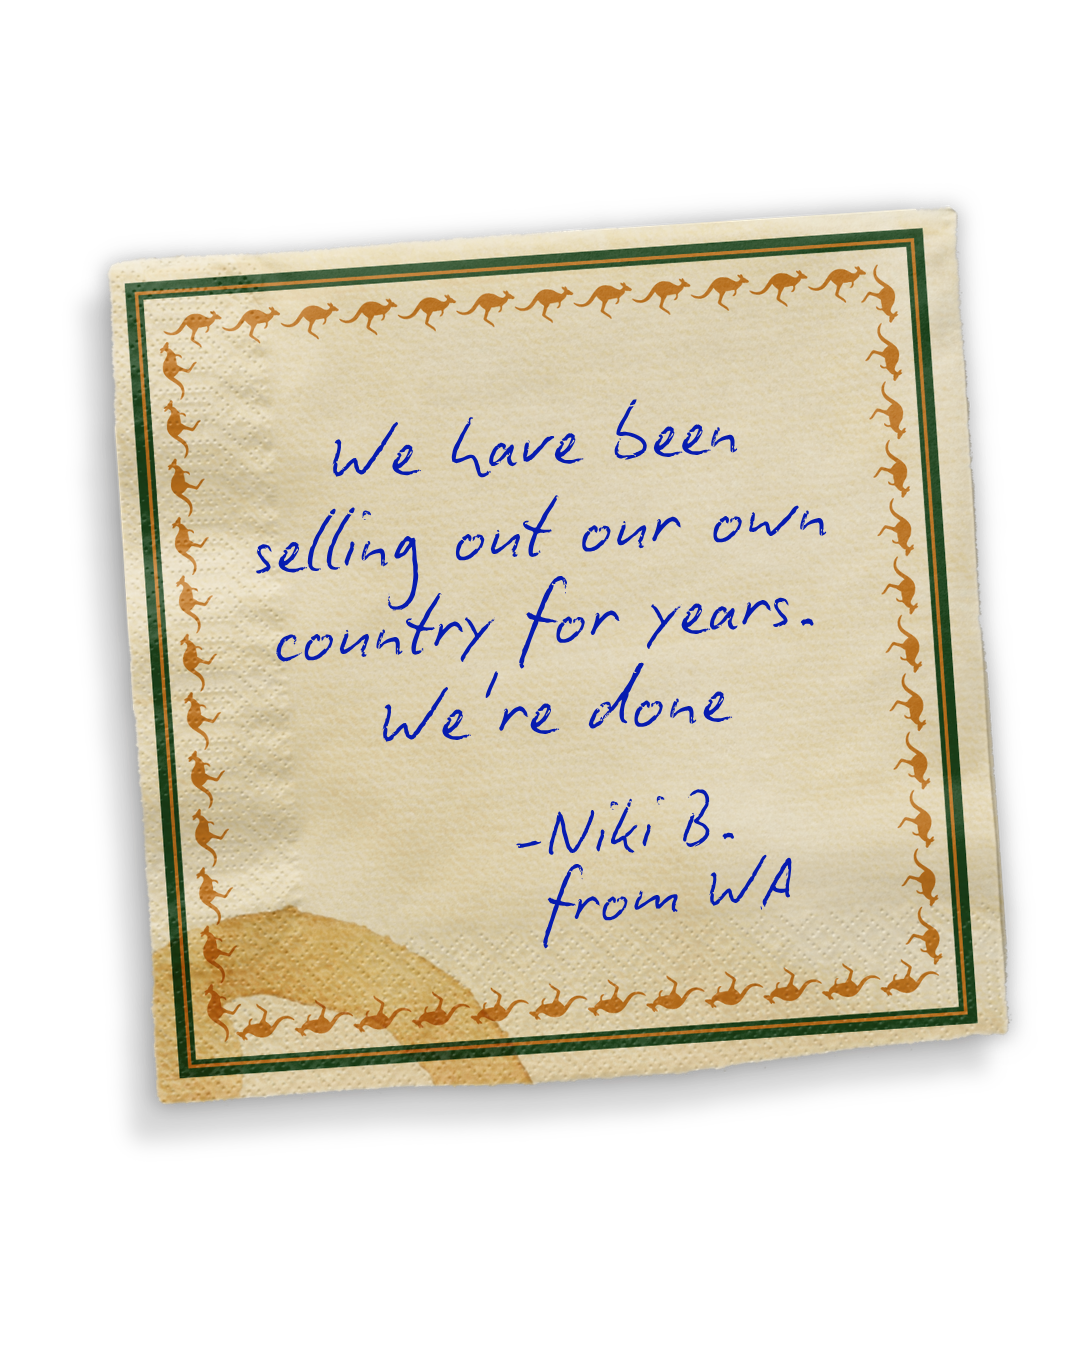 We have been
selling out our own
country for years.
We're done
-Niki B.
from WA